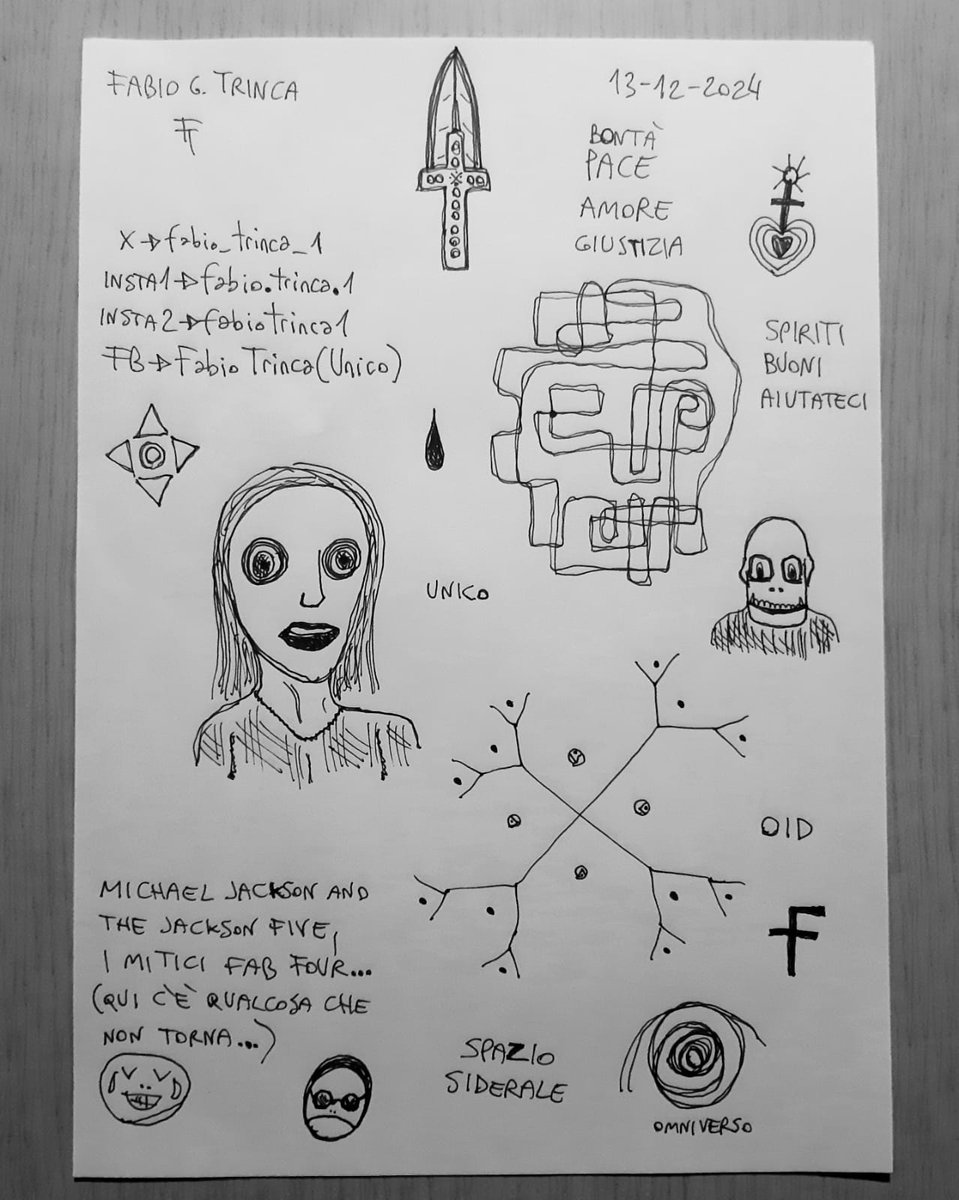 FABIO G. TRINCA
13-12-2024
FT
BONTÀ
PACE
AMORE
GIUSTIZIA
X→fabio_trinca_1
INSTA1→fabio.trinca.1
INSTA2→fabiotrinca1
FB→Fabio Trinca(Unico)
SPIRITI
BUONI
AIUTATECI
UNICO
OID
F
MICHAEL JACKSON AND
THE JACKSON FIVE,
I MITICI FAB FOUR...
(QUI C'È QUALCOSA CHE
NON TORNA...)
SPAZIO
SIDERALE
OMNIVERSO